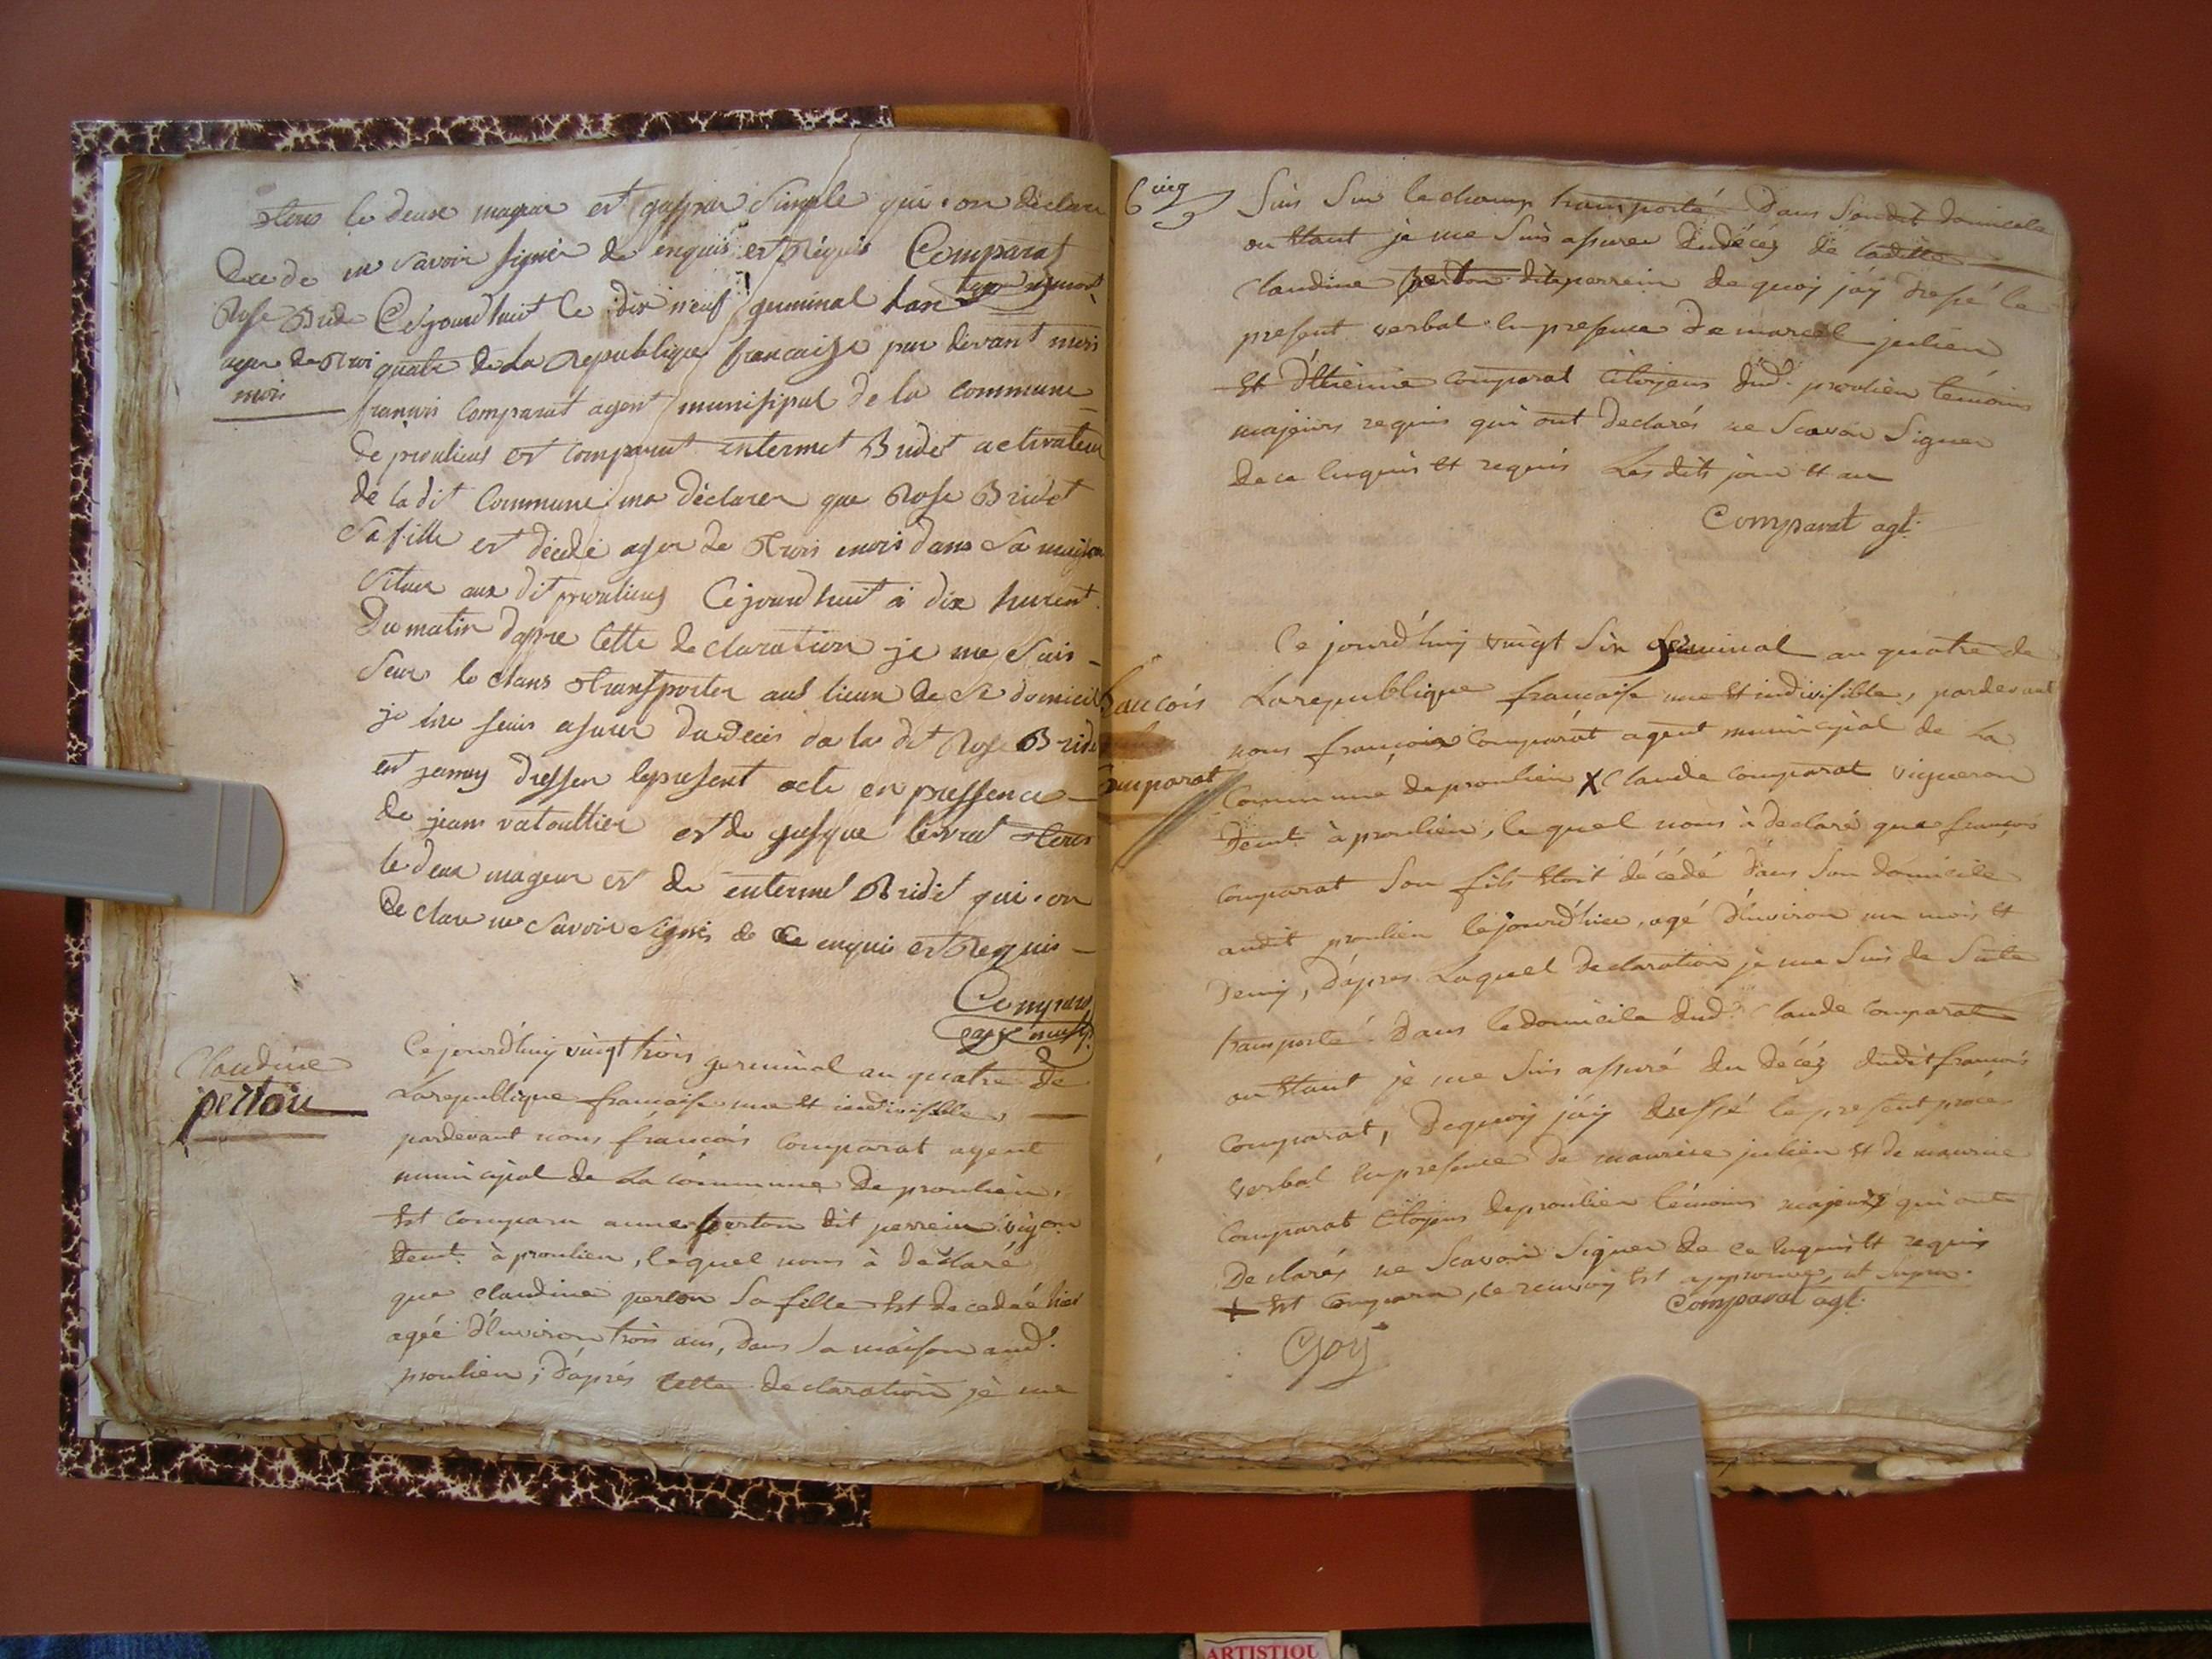 tous le deux mageur et gaspar Simple qui on declare
ne savoir signér de enquis et Réquis Comparat
agen
Dec de
Rose Bride
ager de troi
mois
Cejourdhuit le dix neuf germinal lan
quatre de La Republique francaize par devant mois
francois Comparat agent munisipal de la commune
de proulieus et comparut entermet Bridet cultivateur
de la dit Commune ma dèclarer que Rose Bridet
Sa fille est décedé ager de trois mois dans Sa maison
Situer aux dit proulieus Cejourdhuit à dix hureut
Du matin dapre Cette declaration je me Suis
Seur le chans transporter aus lieux de Se domicil
je me suis asurer du deces da la dit Rose Bride
et jamay dresser lepresent acte en pressence
de jeans vatouttier et de josepe levrat tous
le deux mageur et de entermet Bridet qui on
Declare ne Savoir Signés de Ce enquis et Requis
Comparat
agt munip.
Claudine
perton
Cejourd'huy vingt trois germinal an quatre de
Larepublique française une et indivisible,
pardevant nous francois Comparat agent
municipal de La commune De proulieu,
Est comparu anne perton dit perrein vigon
demt. à proulieu, lequel nous à déclaré
que claudine perton Sa fille Est decedeé hier
ageé d'Environ trois ans, dans Sa maison aud.
proulieu; d'aprés cette declaration jè me
Cinq
Suis Sur lechamp transporté Dans Sondit domicile
ou Etant je me Suis assurer dudécéz de laditte
Claudine perton dite perrein de quoy j'áy dressé le
present verbal En presence de marcel julien
Et d'Etienne comparat Citoyens dud. proulieu temoins
majeurs requis qui ont declarés ne Scavoir Signer
de ce Enquis Et requis Les dits jour Et an
Comparat agt.
francois
Comparat
Ce jourd'huy vingt Six germinal an quatre de
Larepublique française une Et indivisible, pardevant
nous françois Comparat agent municipal de La
Commune de proulieu X Claude comparat vigneron
demt. à proulieu, lequel nous à declaré que françois
comparat Son fils Etoit décédé dans Son domicile
audit proulieu lejourd'hier, agé d'Environ un mois Et
demy, d'apres Laquel declaration jè me Suis de Suite
transporté Dans ledomicile dud. Claude Comparat
ou Etant je me Suis assuré du décéz dudit françois
Comparat, Dequoy j'áy dressé le present procés
verbal En presence de maurice julien Et de maurice
Comparat Citoyens deproulieu témoins majeurs qui ont
Declarés ne Scavoir Signer de ce Enquis Et requis
X Est Comparu, le renvoy Est approuvé, ut supra.
Comparat agt.
Goy
ARTISTIQU